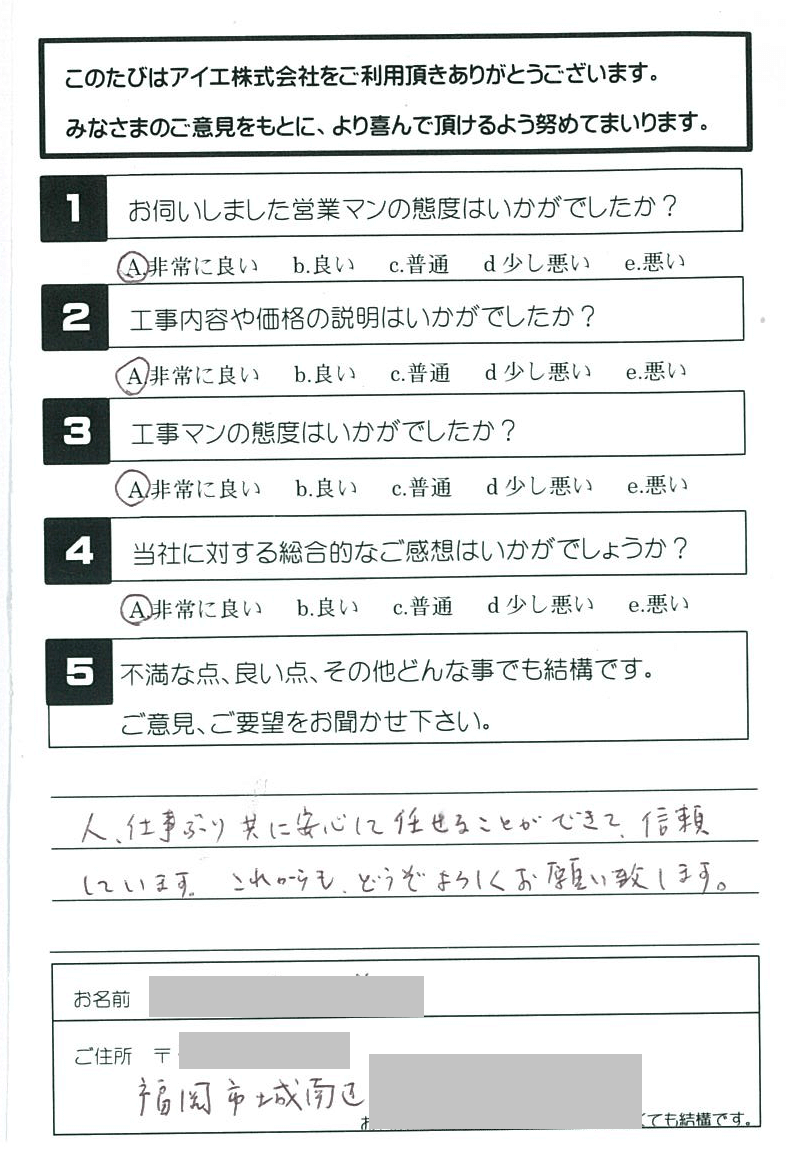 このたびはアイエ株式会社をご利用頂きありがとうございます。
みなさまのご意見をもとに、より喜んで頂けるよう努めてまいります。
1 お伺いしました営業マンの態度はいかがでしたか？
A.非常に良い b.良い c.普通 d少し悪い e.悪い
2 工事内容や価格の説明はいかがでしたか？
A.非常に良い b.良い c.普通 d少し悪い e.悪い
3 工事マンの態度はいかがでしたか？
A.非常に良い b.良い c.普通 d少し悪い e.悪い
4 当社に対する総合的なご感想はいかがでしょうか？
A.非常に良い b.良い c.普通 d少し悪い e.悪い
5 不満な点、良い点、その他どんな事でも結構です。
ご意見、ご要望をお聞かせ下さい。
人、仕事ぶり共に安心して任せることができて、信頼
しています。これからも、どうぞよろしくお願い致します。
お名前
ご住所 〒
福岡市城南区
ても結構です。